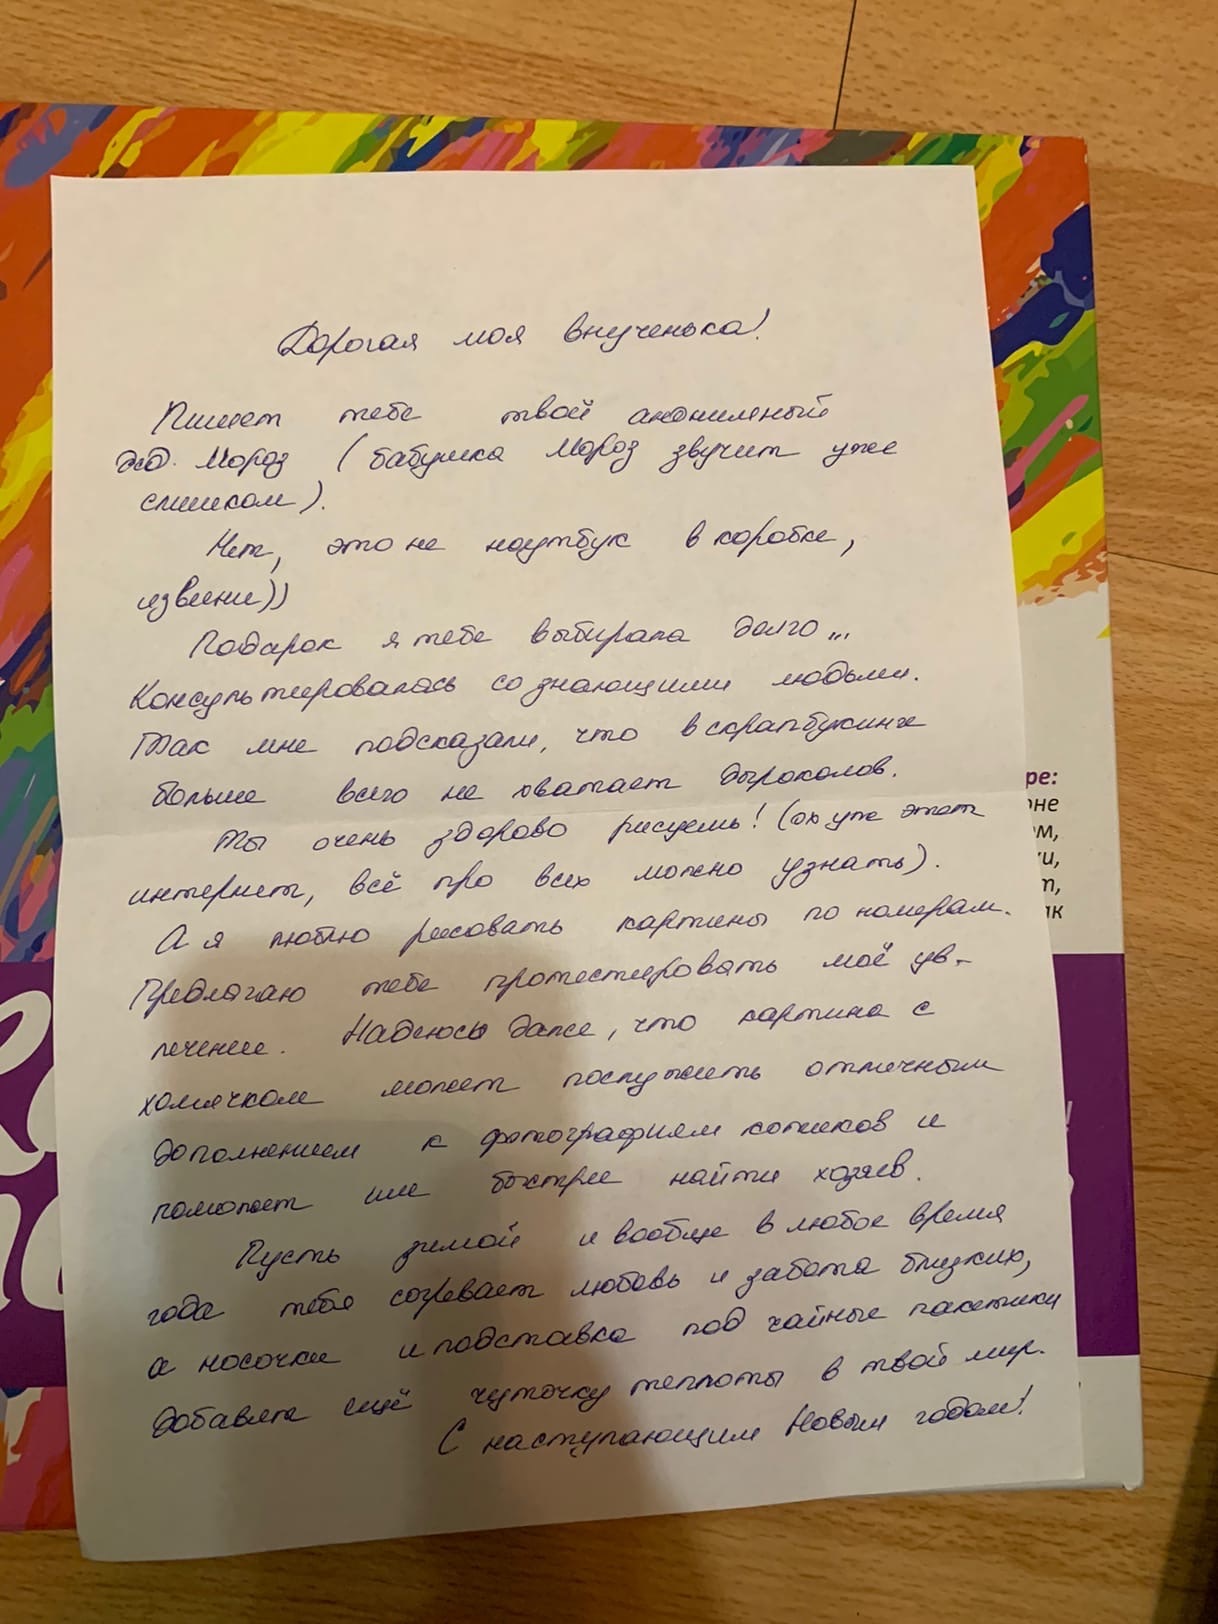 Дорогая моя внученька!
Пишет тебе твой анонимный
Дед Мороз (бабушка Мороз звучит уже
слишком).
Нет, это не ноутбук в коробке,
извини))
Подарок я тебе выбирала долго...
Консультировалась со знающими людьми.
Так мне подсказали, что в скрапбукинге
больше всего не хватает дыроколов.
Ты очень здорово рисуешь! (ох уже этот
интернет, всё про всех можно узнать).
А я люблю рисовать картины по номерам.
Предлагаю тебе протестировать моё ув-
лечение. Надеюсь даже, что картина с
хомячком может послужить отличным
дополнением к фотографиям котиков и
поможет им быстрее найти хозяев.
Пусть зимой и вообще в любое время
года тебя согревает любовь и забота близких,
а носочки и подставка под чайные пакетики
добавят ещё чуточку теплоты в твой мир.
С наступающим Новым годом!
ре:
оне
ом,
ки,
т,
ак